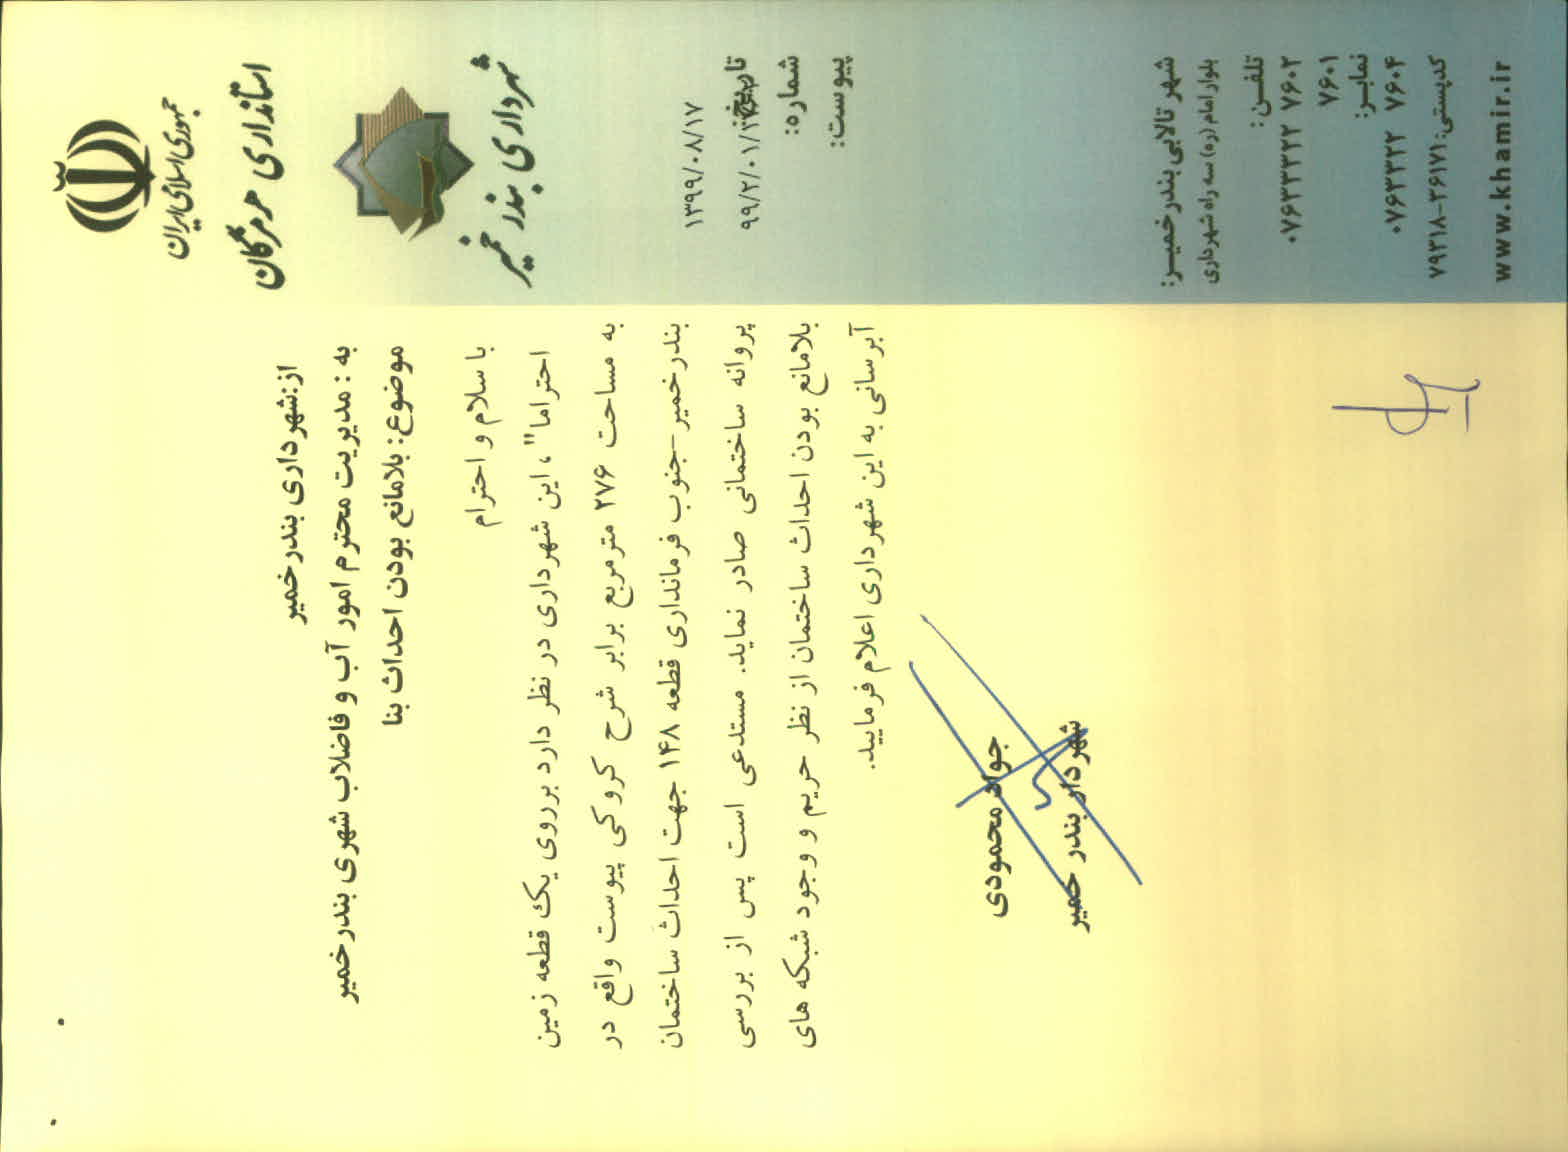 جمهوری اسلامی ایران
استانداری هرمزگان
شهرداری بندر خمیر
۱۳۹۹/۰۸/۱۷
تاریخ:
شماره:
پیوست:
از:شهرداری بندرخمیر
به : مدیریت محترم امور آب و فاضلاب شهری بندرخمیر
موضوع: بلامانع بودن احداث بنا
با سلام و احترام
احتراما"، این شهرداری در نظر دارد برروی یک قطعه زمین
به مساحت ۲۷۶ مترمربع برابر شرح کروکی پیوست واقع در
بندرخمیر-جنوب فرمانداری قطعه ۱۴۸ جهت احداث ساختمان
پروانه ساختمانی صادر نماید. مستدعی است پس از بررسی
بلامانع بودن احداث ساختمان از نظر حریم و وجود شبکه های
آبرسانی به این شهرداری اعلام فرمایید.
جواد محمودی
شهردار بندر خمیر
شهر تالابی بندرخمیـر:
بلوار امام (ره) سه راه شهرداری
تلفـن:
۰۷۶۳۳۳۲۲ ۷۶۰۲
۷۶۰۱
نمابـر:
۰۷۶۳۳۲۲ ۷۶۰۴
کدپستی: ۷۹۳۱۸-۳۶۱۷۱
www.khamir.ir